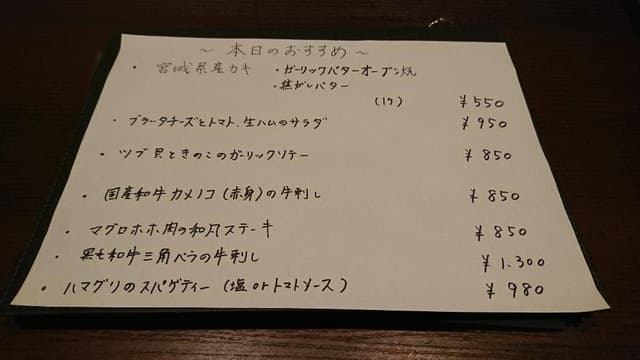 ～ 本日のおすすめ ～
・ 宮城県産カキ ・ガーリックバターオーブン焼
・焦がしバター
(1ケ) ¥550
・ブラータチーズとトマト、生ハムのサラダ ¥950
・ツブ貝ときのこのガーリックソテー ¥850
・国産和牛カメノコ(赤身)の牛刺し ¥850
・マグロホホ肉の和風ステーキ ¥850
・黒毛和牛三角バラの牛刺し ¥1.300
・ハマグリのスパゲティー (塩orトマトソース) ¥980